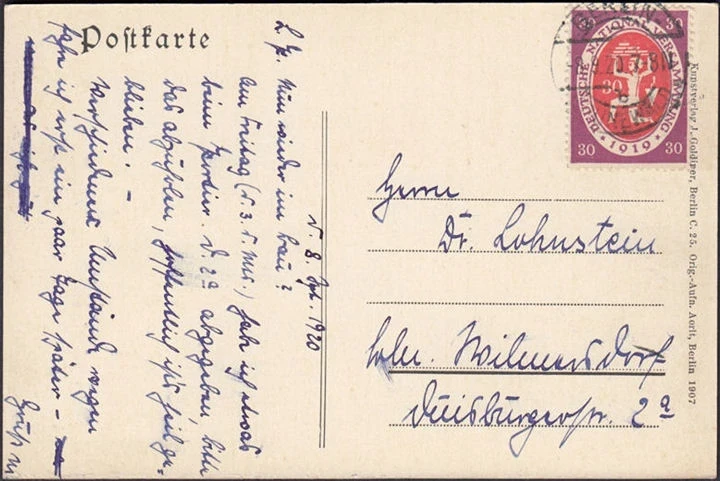 Postkarte
d. 8. Sept. 1920
L. P. Nun wieder im Bau?
Am Freitag (d. 3. d. Mts.) habe ich etwas
beim Portier D. 2a abgegeben, bitte
das abzuholen, hoffentlich ist's heil ge-
blieben. –
Verschiedener Umstände wegen
fahre ich erst ein paar Tage später –
Gruß
Herrn
Dr. Lohnstein
Bln. Wilmersdorf
Duisburgerstr. 2a
BERLIN
8.9.20. 7-8N
30 30
DEUTSCHE NATIONALVERSAMMLUNG
30
30 1919 30
Kunstverlag J. Goldiner, Berlin C. 25. Orig.-Aufn. Aorit, Berlin 1907